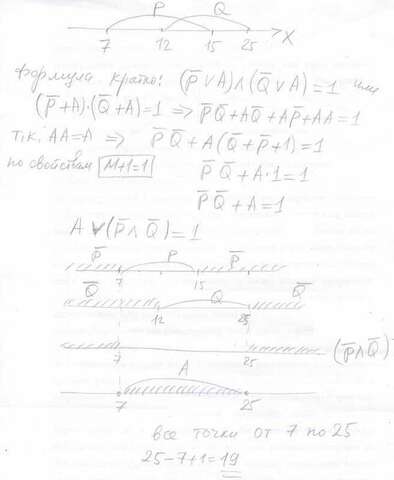 P Q
7 12 15 25 X
формула кратко: (P̅ ∨ A) ∧ (Q̅ ∨ A) = 1 или
(P̅+A)·(Q̅+A)=1 => P̅Q̅+AQ̅+AP̅+AA=1
т.к. AA=A => P̅Q̅+A(Q̅+P̅+1)=1
по свойствам M+1=1 P̅Q̅+A·1=1
P̅Q̅+A=1
A ∨ (P̅ ∧ Q̅)=1
P̅ P P̅
7 15
Q̅ Q Q̅
12 25
7 25 (P̅ ∧ Q̅)
A
7 25
все точки от 7 по 25
25-7+1=19